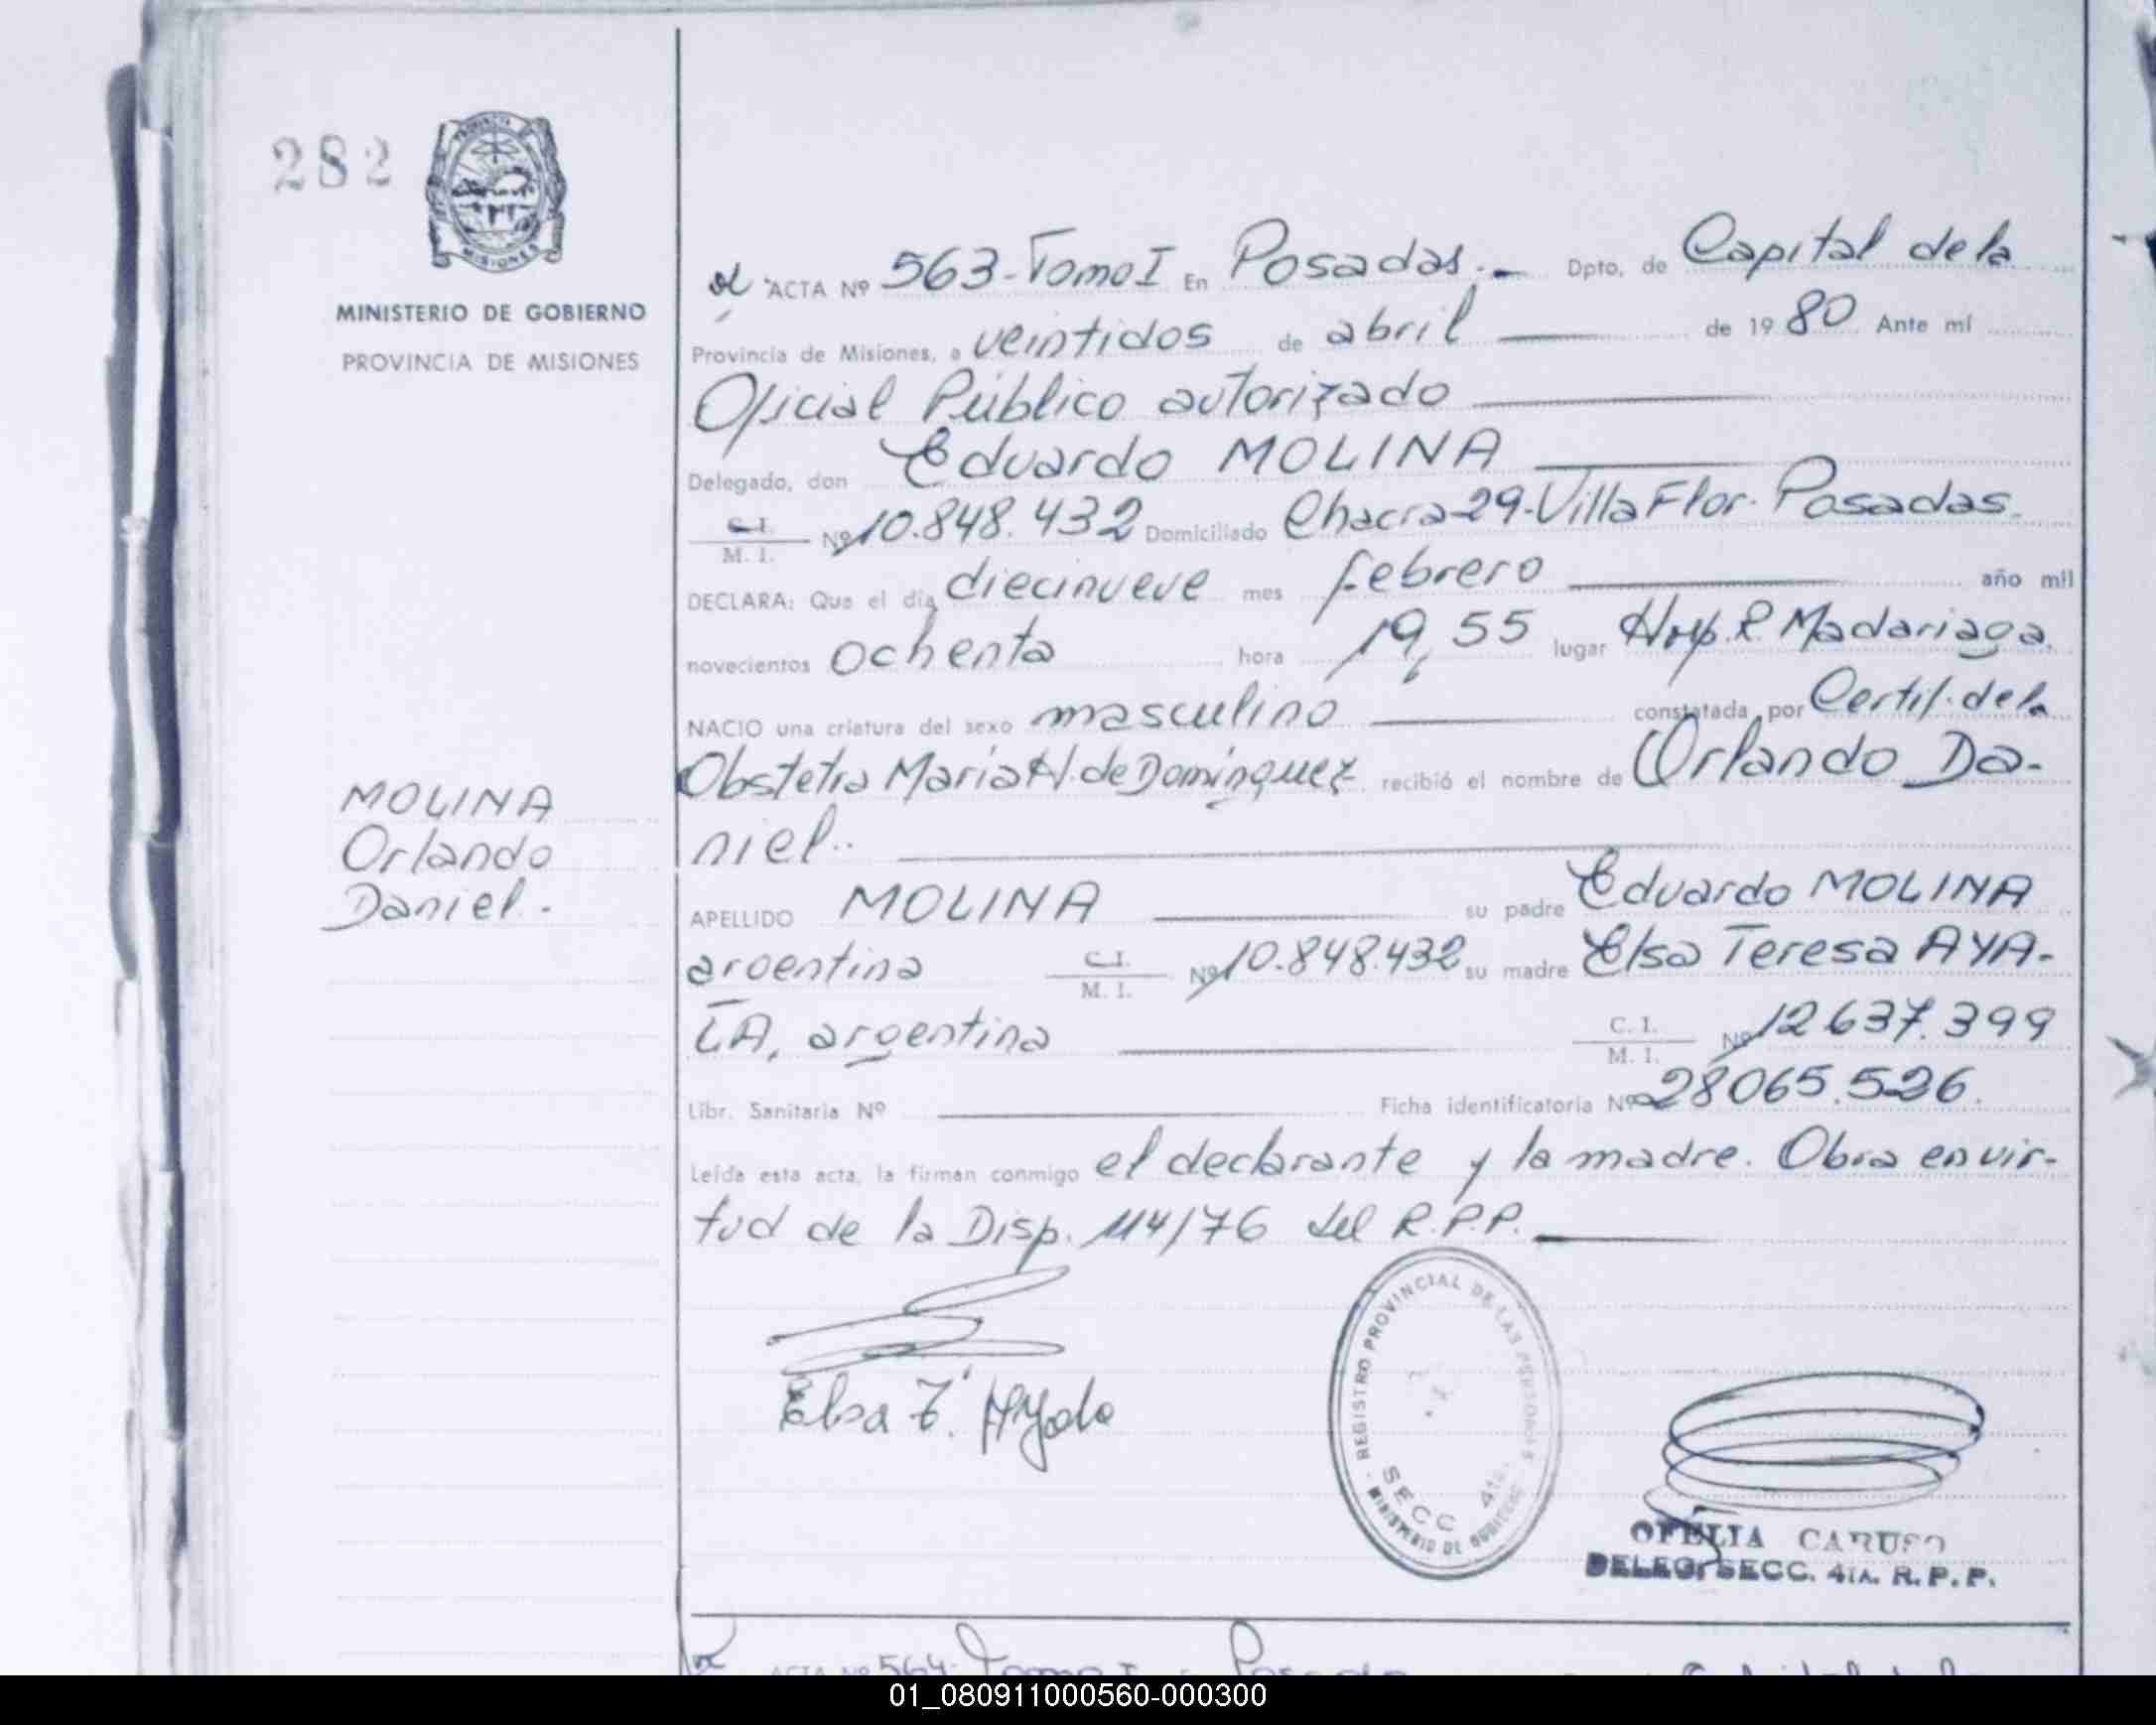 282
PROVINCIA DE
MISIONES
MINISTERIO DE GOBIERNO
PROVINCIA DE MISIONES
MOLINA
Orlando
Daniel.
ACTA Nº 563-Tomo I En Posadas.- Dpto. de Capital de la
Provincia de Misiones, a veintidos de abril de 1980 Ante mí
Oficial Público autorizado
Delegado, don Eduardo MOLINA
C.I. M.I. Nº 10.848.432 Domiciliado Chacra 29-Villa Flor. Posadas.
DECLARA: Que el día diecinueve mes febrero año mil
novecientos ochenta hora 19,55 lugar Hosp. R. Madariaga.
NACIO una criatura del sexo masculino constatada por Certif. de la
Obstetra Maria H. de Dominguez recibió el nombre de Orlando Da-
niel..
APELLIDO MOLINA su padre Eduardo MOLINA
argentina C.I. M.I. Nº 10.848.432 su madre Elsa Teresa AYA-
LA, argentina C.I. M.I. Nº 12637.399
Libr. Sanitaria Nº Ficha identificatoria Nº 28065.526.
Leída esta acta, la firman conmigo el declarante y la madre. Obra en vir-
tud de la Disp. 114/76 del R.P.P.
Elsa T. Ayala
REGISTRO PROVINCIAL DE LAS PERSONAS
SECC 4ta.
MINISTERIO DE GOBIERNO
OFELIA CARUSO
DELEG. SECC. 4TA. R.P.P.
ACTA Nº 564- Tomo I En Posadas Capital de la
01_080911000560-000300